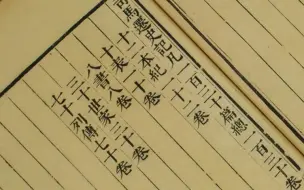 司馬遷史記凡一百三十篇總一百三十卷
十二本紀十二卷
十表十卷
八書八卷
三十世家三十卷
七十列傳七十卷